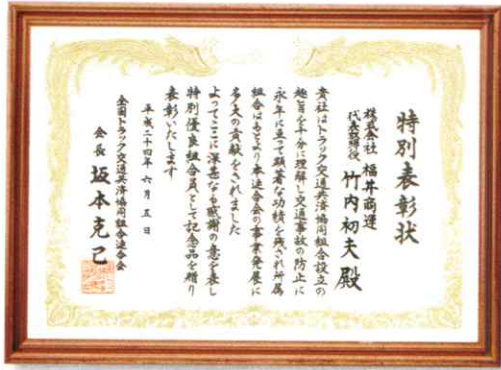 特別表彰状
株式会社 福井商運
代表取締役 竹内初夫殿
貴社はトラック交通共済協同組合設立の
趣旨を十分に理解し交通事故の防止に
永年に亘って顕著な功績を残され所属
組合はもとより本連合会の事業発展に
多大の貢献をされました
よってここに深甚なる感謝の意を表し
特別優良組合員として記念品を贈り
表彰いたします
平成二十四年六月五日
全国トラック交通共済協同組合連合会
会長 坂本克己